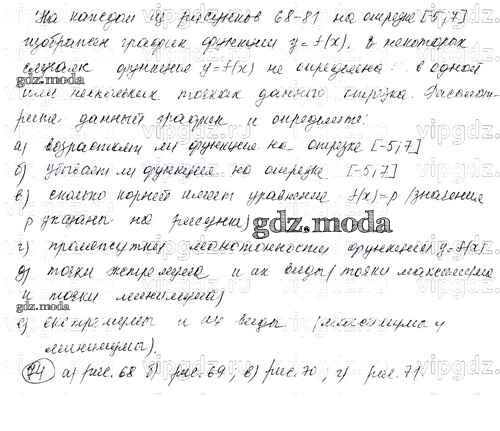 На каждом из рисунков 68-81 на отрезке [-5;7]
изображен график функции y=f(x). В некоторых
случаях функция y=f(x) не определена в одной
или нескольких точках данного отрезка. Рассмот-
рите данный график и определите:
а) возрастает ли функция на отрезке [-5;7]
б) убывает ли функция на отрезке [-5;7]
в) сколько корней имеет уравнение f(x)=p /значения
p указаны на рисунке)
gdz.moda
г) промежутки монотонности функции y=f(x)
д) точки экстремума и их виды (точки максимума
и точки минимума)
е) экстремумы и их виды (максимумы и
минимумы).
74 а) рис. 68 б) рис. 69, в) рис. 70, г) рис. 71.